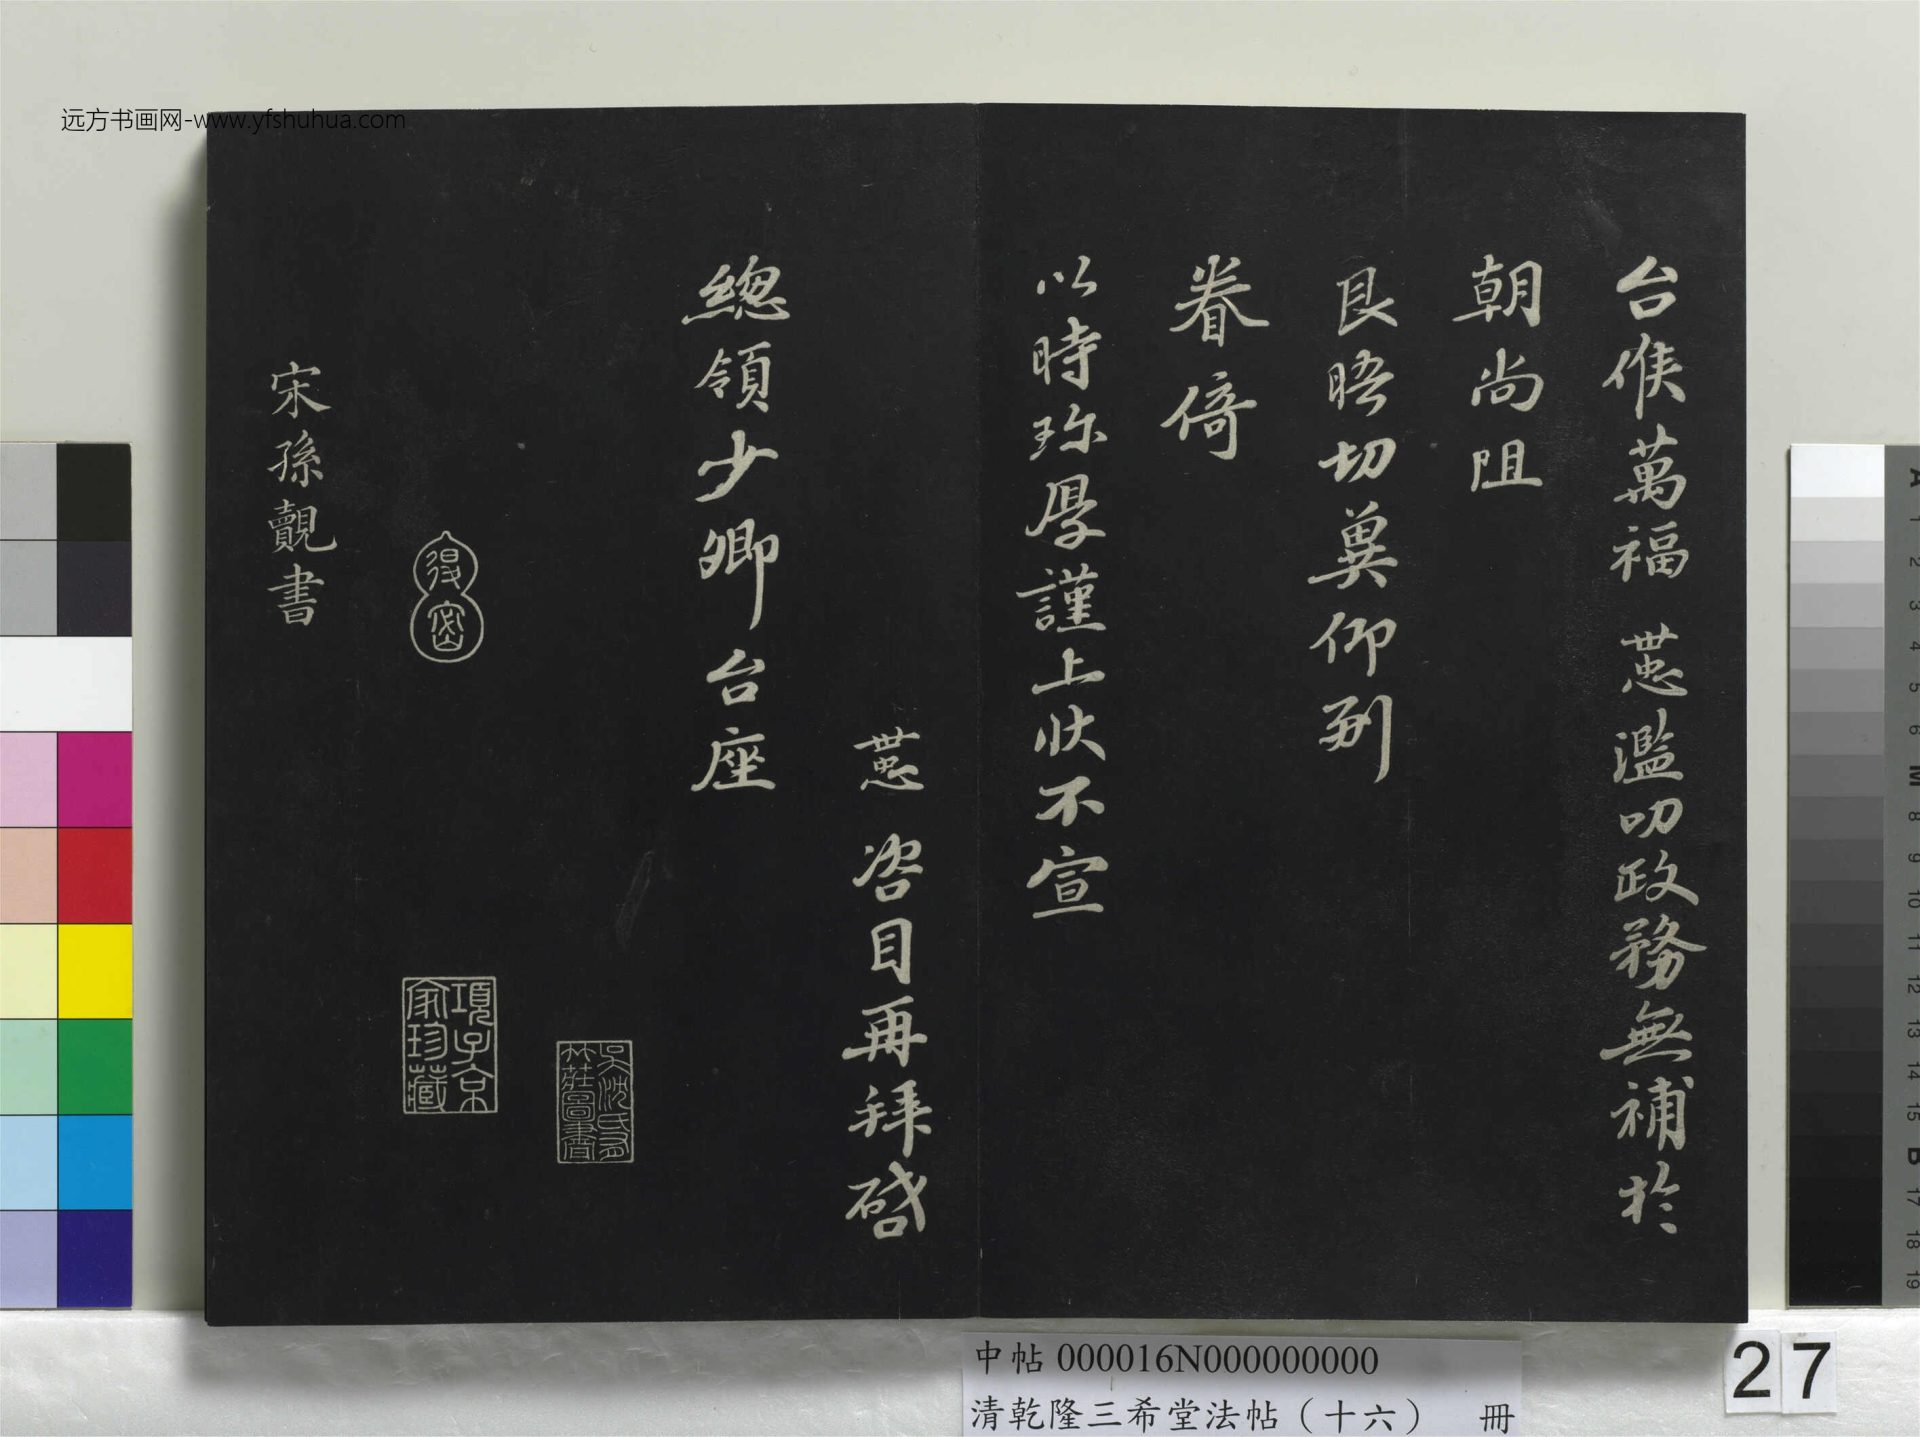 远方书画网-www.yfshuhua.com
台候萬福 世忠濫叨政務無補於
朝尚阻
良晤切冀仰副
眷倚
以時珍厚謹上狀不宣
世忠 咨目再拜啓
總領少卿台座
吳沈氏有竹莊圖書
項子京家珍藏
得密
宋孫覿書
中帖 000016N000000000
清乾隆三希堂法帖（十六） 冊
27
A 1 2 3 4 5 6 M 8 9 10 11 12 13 14 15 B 17 18 19